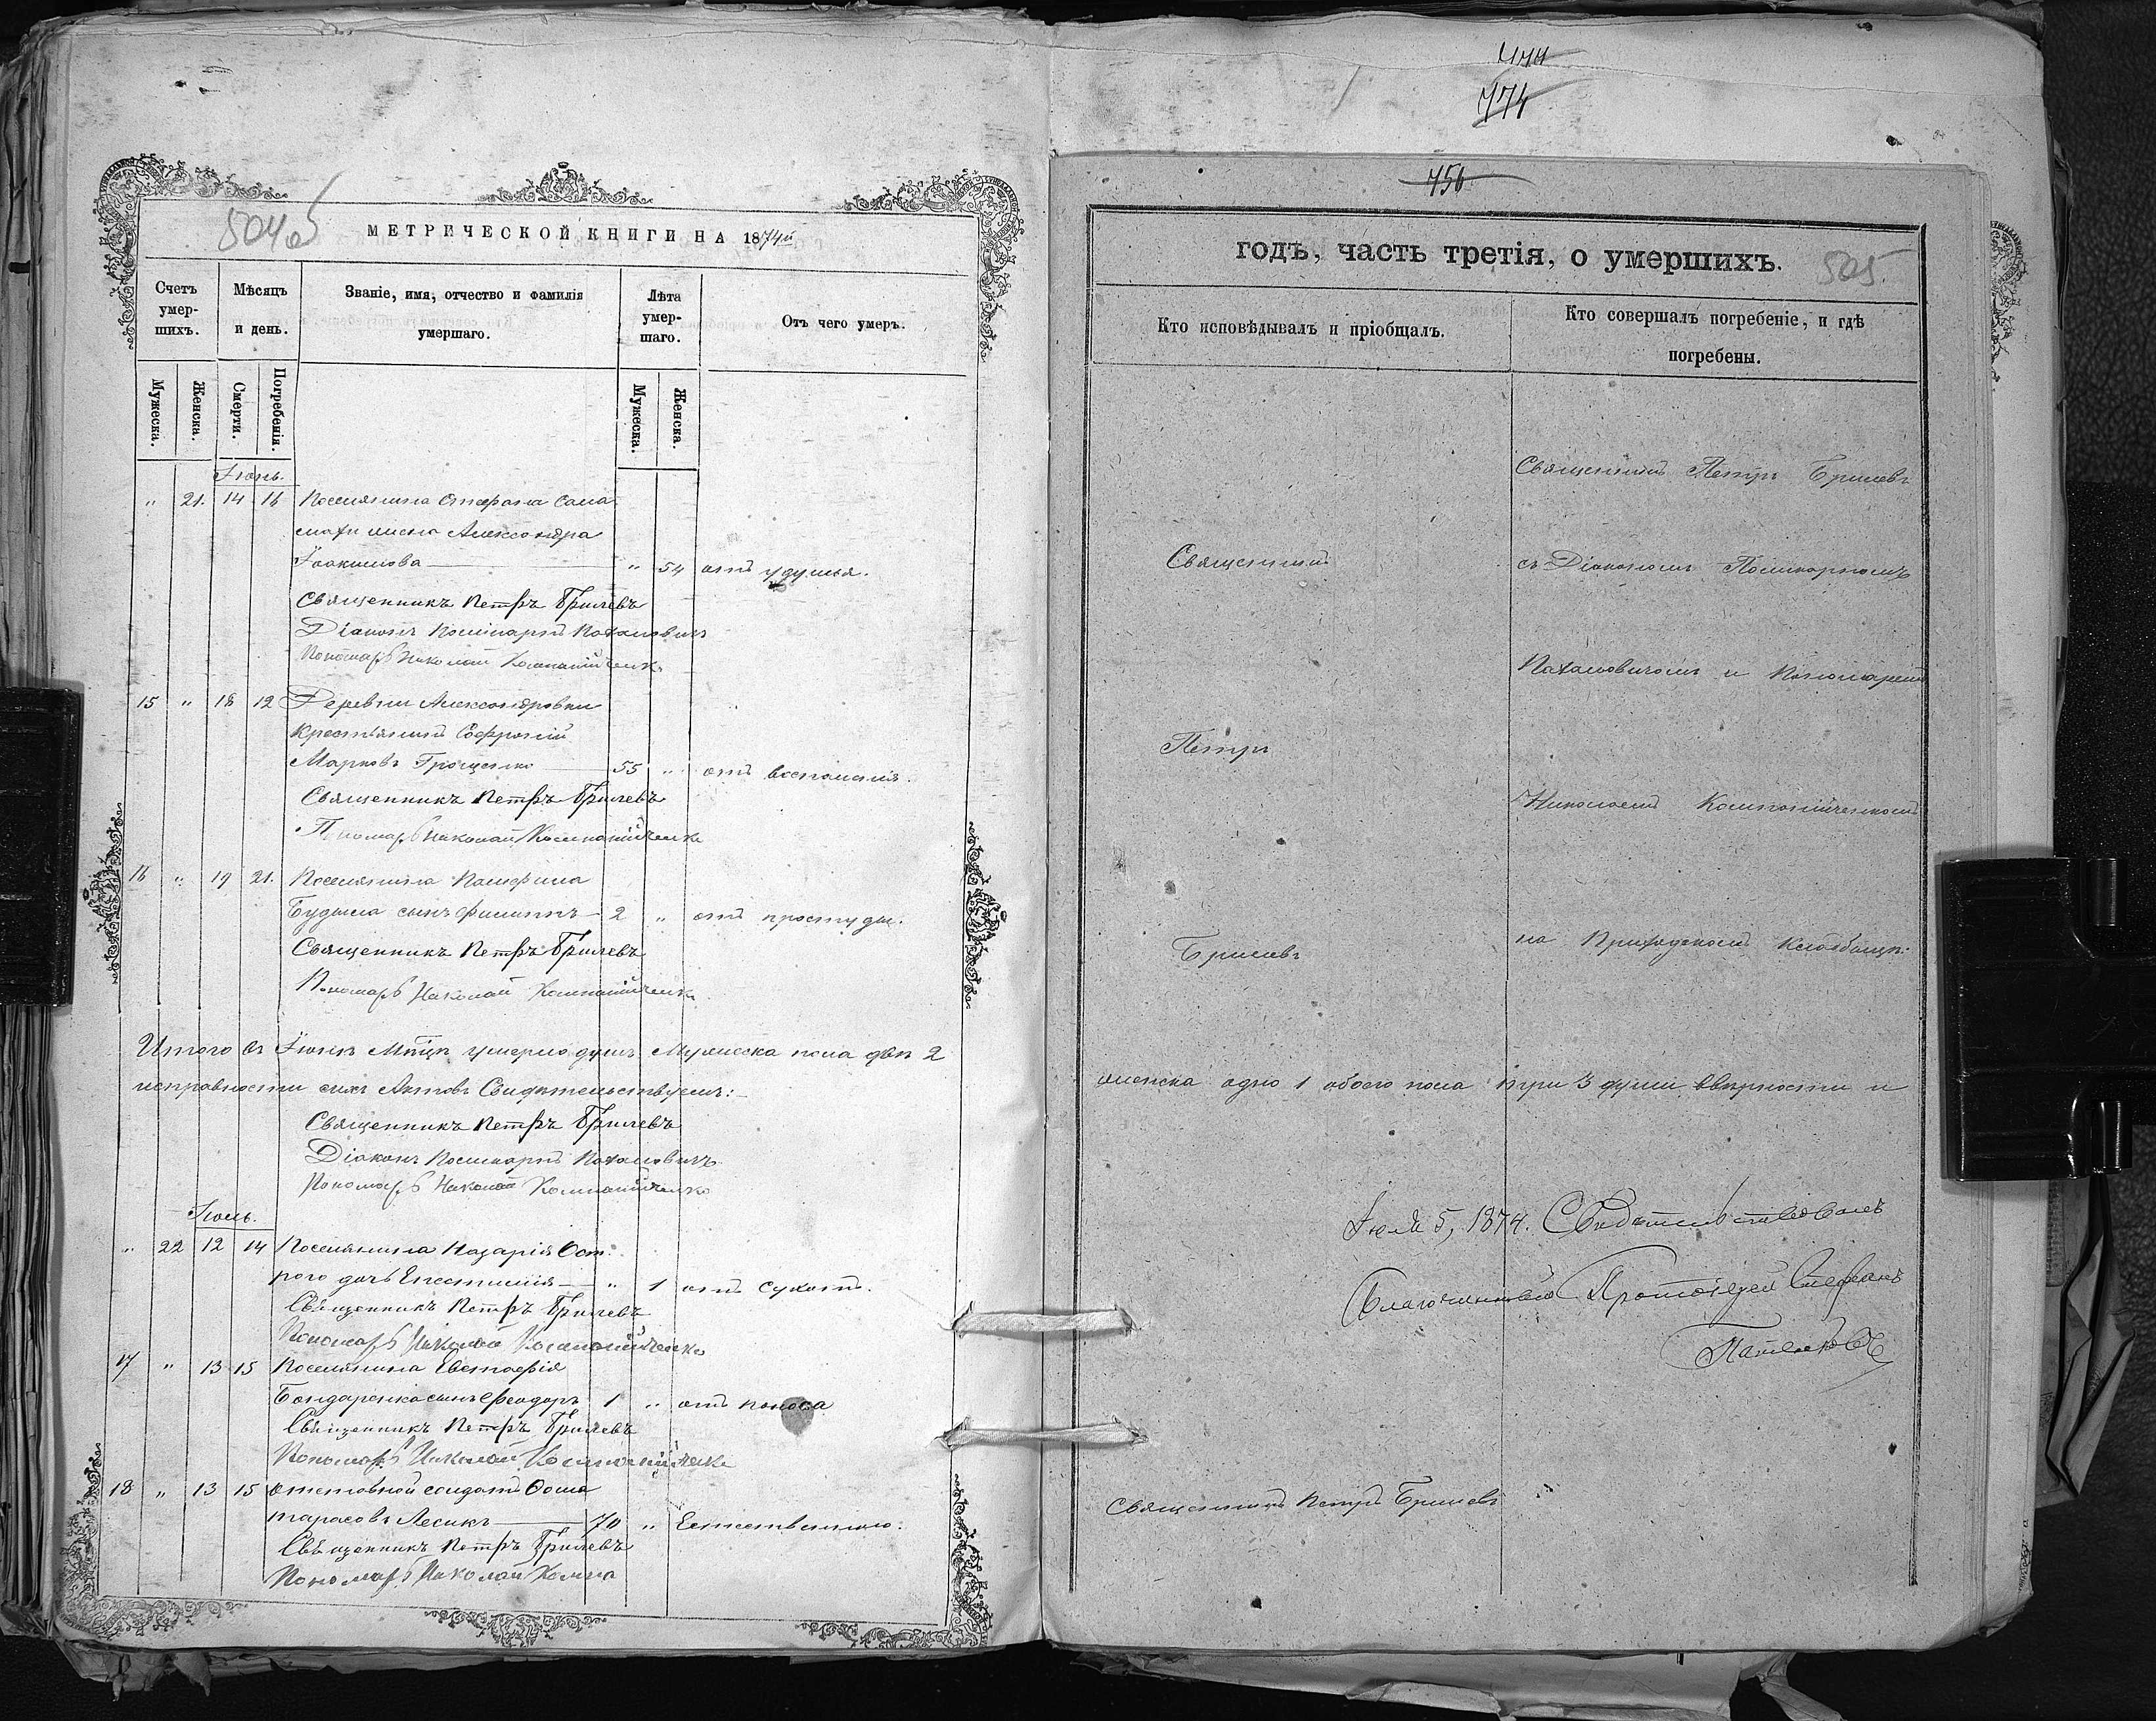 504об
МЕТРИЧЕСКОЙ КНИГИ НА 1874й
Счетъ умершихъ.
Мѣсяцъ и день.
Званіе, имя, отчество и фамилія умершаго.
Лѣта умершаго.
Отъ чего умеръ.
Мужеска.
Женска.
Смерти.
Погребенія.
Мужеска.
Женска.
Іюнь.
" 21. 14 16 Поселянина Стефана Сала
махи жена Александра
Іоакимова " 54 отъ удушья.
Священникъ Петръ Брилевъ
Діаконъ Поликарпъ
Пономарь Николай Компанійченко
15 " 18 12 Деревни Александровки
крестьянинъ Софроній
Марковъ Грищенко 55 " отъ воспаленія.
Священникъ Петръ Брилевъ
Пономарь Николай Компанійченко
16 " 19 21. Поселянина Памфила
сынъ Филиппъ 2 " отъ простуды.
Священникъ Петръ Брилевъ
Пономарь Николай Компанійченко
Итого въ Іюнѣ Мцѣ умерло душъ Мужеска пола двѣ 2
исправности сихъ Актовъ Свидѣтельствуемъ:
Священникъ Петръ Брилевъ
Діаконъ Поликарпъ
Пономарь Николай Компанійченко
Іюль.
" 22 12 14 Поселянина Назарія Ост
рого дочь " 1 отъ сухотъ.
Священникъ Петръ Брилевъ
Пономарь Николай Компанійченко
17 " 13 15 Поселянина Евстафія
Бондаренка сынъ Феодоръ 1 " отъ поноса
Священникъ Петръ Брилевъ
Пономарь Николай Компанійченко
18 " 13 15 отставной солдатъ Фома
Тарасовъ Лесикъ 70 " Естественною.
Священникъ Петръ Брилевъ
Пономарь Николай Компа
774
756
годъ, часть третія, о умершихъ.
505
Кто исповѣдывалъ и пріобщалъ.
Кто совершалъ погребеніе, и гдѣ погребены.
Священникъ Петръ Брилевъ
Священникъ
съ Діакономъ Поликарпомъ
и Пономаремъ
Петръ
Николаемъ Компанійченкомъ
Брилевъ
на Приходскомъ Кладбищѣ:
женска одно 1 обоего пола три 3 души. Вѣрности и
Іюля 5, 1874. Свидѣтельствовалъ
Благочинный Протоіерей Стефанъ
Священникъ Петръ Брилевъ